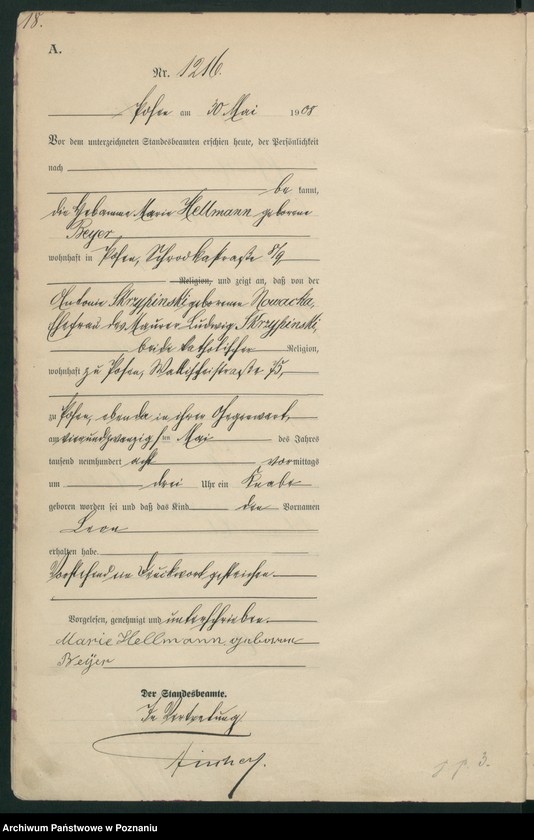 18.
A.
Nr. 1216.
Posen am 30 Mai 1908
Vor dem unterzeichneten Standesbeamten erschien heute, der Persönlichkeit
nach
be kannt,
die Hebamme Marie Hellmann geborene
Beyer
wohnhaft in Posen, Schrodkastraße 8/9
Religion, und zeigt an, daß von der
Antonie Skrzypinski geborenen Nowacka,
Ehefrau des Maurer Ludwig Skrzypinski,
beide katholischer Religion,
wohnhaft zu Posen, Wallischeistraße 75,
zu Posen, ebenda in ihrer Gegenwart,
am vierundzwanzigsten Mai des Jahres
tausend neunhundert acht vormittags
um drei Uhr ein Knabe
geboren worden sei und daß das Kind den Vornamen
Leon
erhalten habe.
Vorstehend ein Druckwort gestrichen.
Vorgelesen, genehmigt und unterschrieben.
Marie Hellmann geborene
Beyer
Der Standesbeamte.
In Vertretung
3.
Archiwum Państwowe w Poznaniu